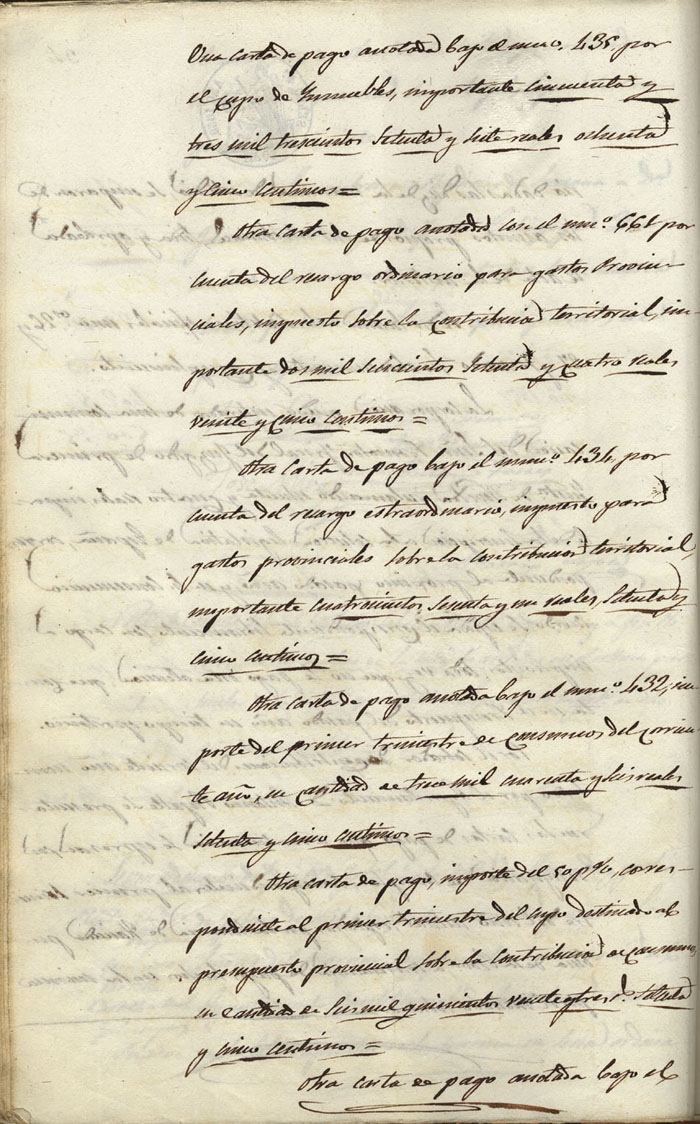 Una carta de pago anotada bajo el num.º 435, por
el cupo de Ynmuebles, importante cincuenta y
tres mil trescientos setenta y siete reales ochenta
y cinco centimos =
Otra carta de pago anotada con el num.º 661 por
cuenta del recargo ordinario para gastos Provin-
ciales, impuesto sobre la contribucion territorial, im-
portante dos mil seiscientos setenta y cuatro reales
veinte y cinco centimos =
Otra carta de pago bajo el num.º 434, por
cuenta del recargo estraordinario, impuesto para
gastos provinciales sobre la contribucion territorial,
importante cuatrocientos sesenta y un reales, setenta y
cinco centimos =
Otra carta de pago anotada bajo el num.º 432, im-
porte del primer trimestre de consumos del corrien-
te año, en cantidad de trece mil cuarenta y seis reales
setenta y cinco centimos =
Otra carta de pago, importe del 50 p%, corres-
pondiente al primer trimestre del cupo destinado al
presupuesto provincial sobre la contribucion de consumos
en cantidad de seis mil quinientos veinte y tres r.s setenta
y cinco centimos =
Otra carta de pago anotada bajo el